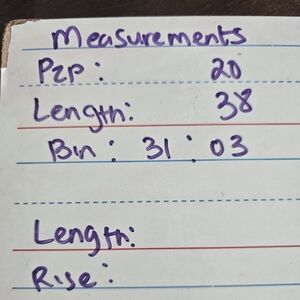 Measurements
P2P: 20
Length: 38
Bin: 31:03
Length:
Rise: